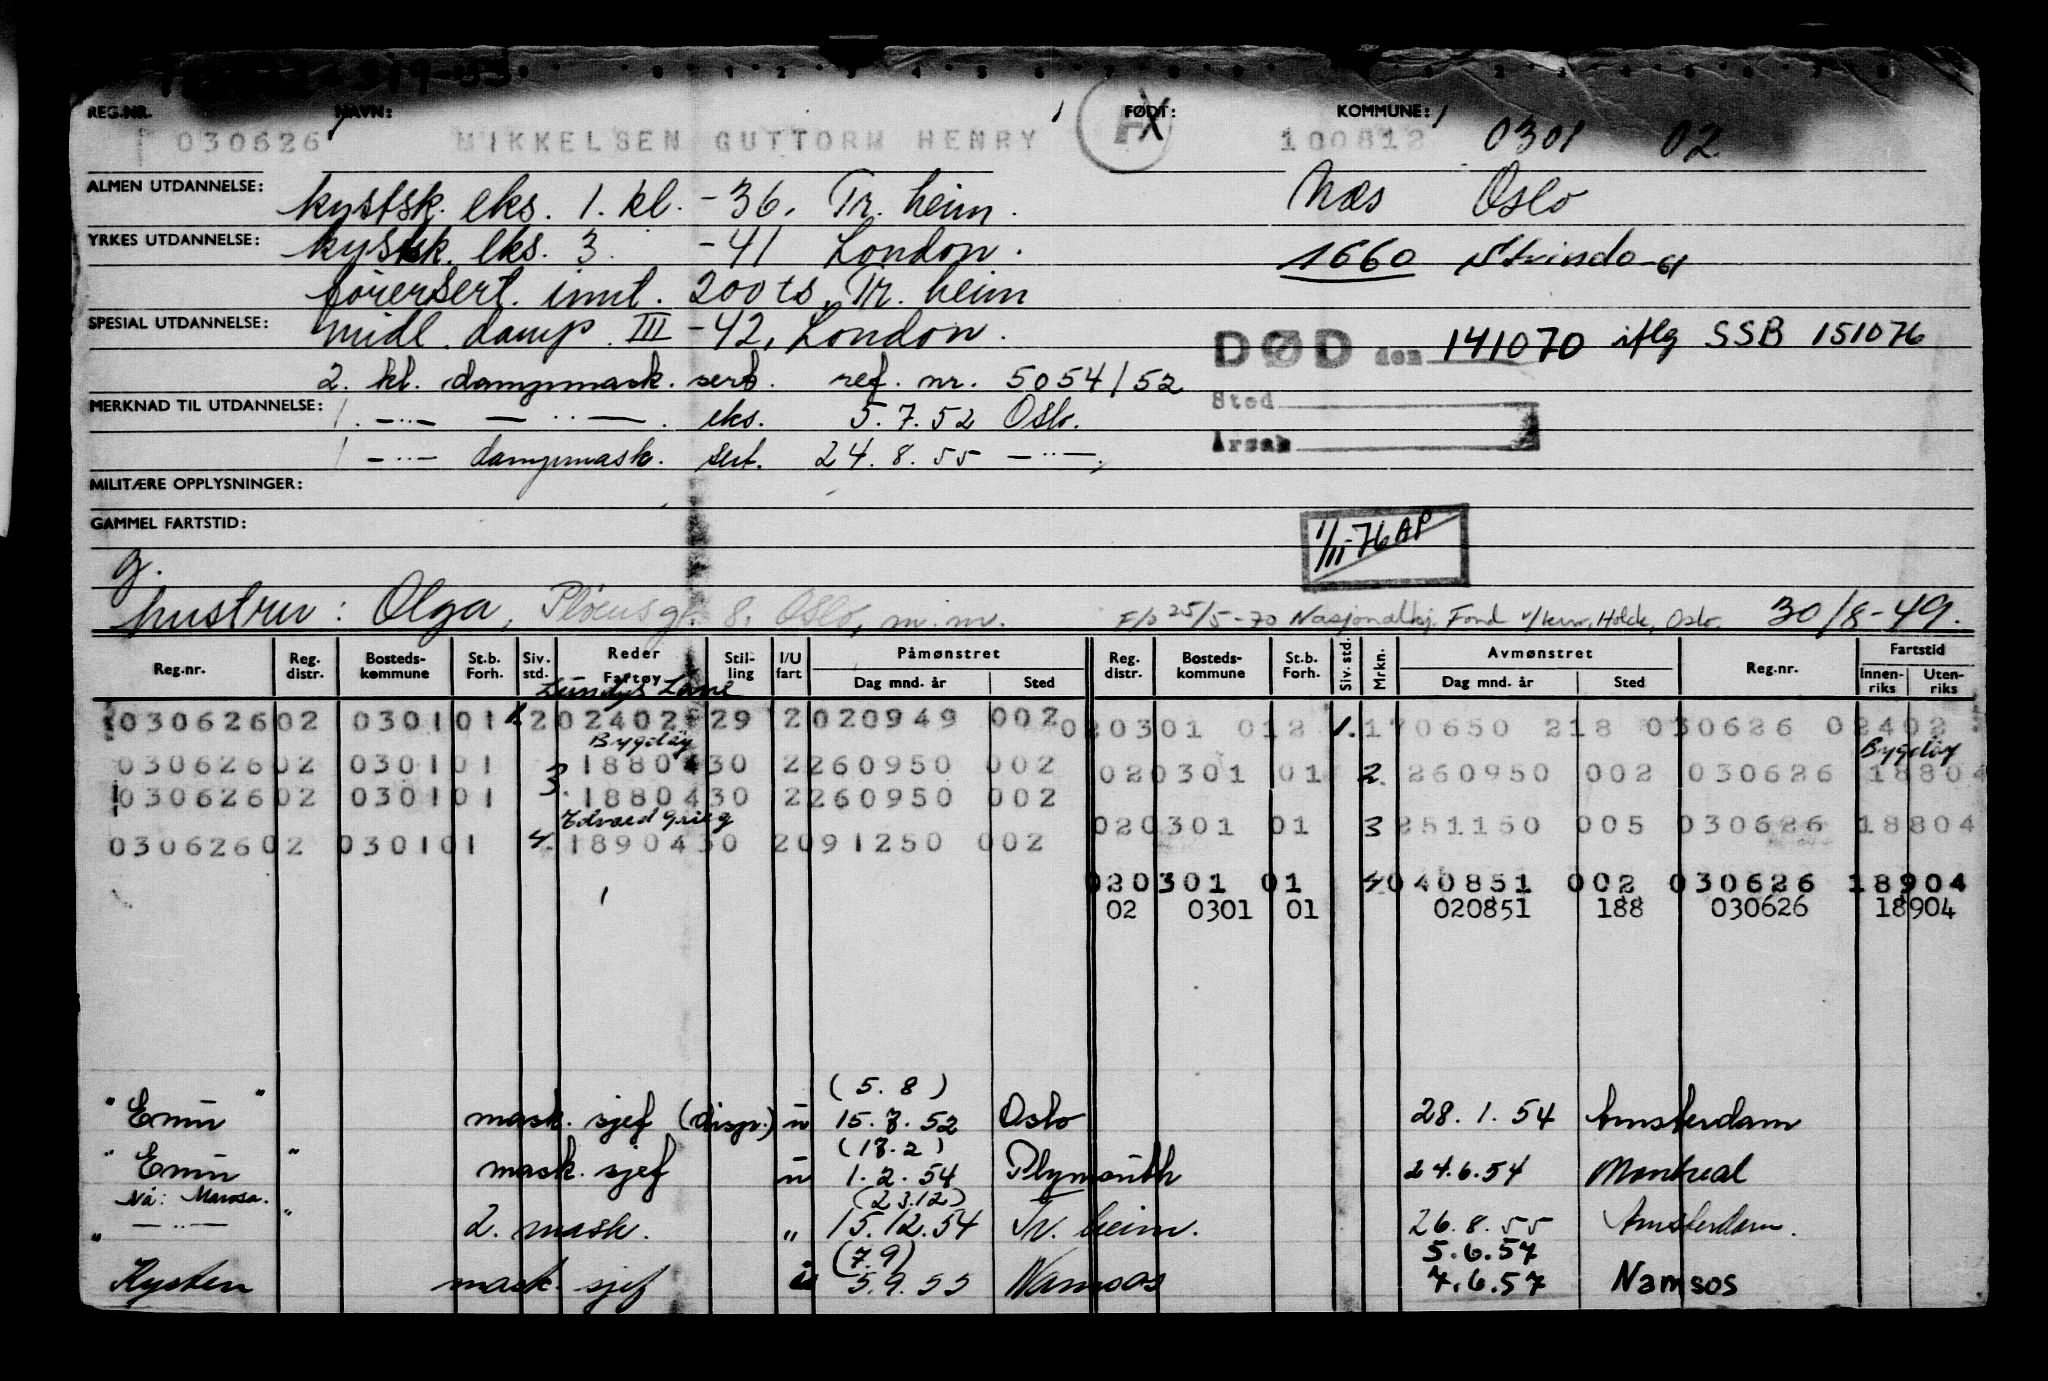 REG.NR. NAVN: FØDT: KOMMUNE:
030626 MIKKELSEN GUTTORM HENRY 100812 0301 02
ALMEN UTDANNELSE: kystsk. eks. 1. kl. -36, Tr. heim. Næs Oslo
YRKES UTDANNELSE: kystsk. eks. 3. -41 London. 1660 Strinda-61
førersert. innt. 200 ts, Tr. heim
SPESIAL UTDANNELSE: midl. damp. III -42, London. DØD den 141070 iflg SSB 151076
2. kl. dampmask. sert. ref. nr. 5054/52 Sted
MERKNAD TIL UTDANNELSE: 1. -"- -"- . eks. 5.7.52 Oslo. Årsak
1 -"- dampmask. sert. 24.8.55 -"-.
MILITÆRE OPPLYSNINGER:
GAMMEL FARTSTID: 1/11-76 AP
g.
hustru: Olga, Pløensgt. 8. Oslo, m.m. F/o 25/5-70 Fond Oslo. 30/8-49.
Reg.nr. Reg. distr. Bosteds- kommune St.b. Forh. Siv. std. Reder Fartøy Stil- ling I/U fart Påmønstret Dag mnd. år Sted Reg. distr. Bosteds- kommune St.b. Forh. Siv. std. Mrkn. Avmønstret Dag mnd. år Sted Reg.nr. Fartstid Innen- riks Uten- riks
Lundys Lane
030626 02 0301 01 1. 2 02402 29 2 020949 002 02 0301 012 1. 170650 218 030626 02402
Bygdøy Bygdøy
030626 02 0301 01 18804 30 2 260950 002 02 0301 01 2. 260950 002 030626 18804
030626 02 0301 01 3. 18804 30 2 260950 002
Edvard Grieg
02 0301 01 3 251150 005 030626 18804
030626 02 0301 01 4. 18904 30 2 091250 002
02 0301 01 4 040851 002 030626 18904
02 0301 01 020851 188 030626 18904
(5.8)
" Emin " mask. sjef (disp.) u 15.7.52 Oslo 28.1.54 Amsterdam
(17.2)
" Emin " mask. sjef u 1.2.54 Plymouth 24.6.54 Montreal
Nå: Marosa. (23.12)
" -"- " 2. mask. " 15.12.54 Tr. heim. 26.8.55 Amsterdam.
(7.9) 5.6.57
Kysten mask. sjef i 5.9.55 Namsos 7.6.57 Namsos